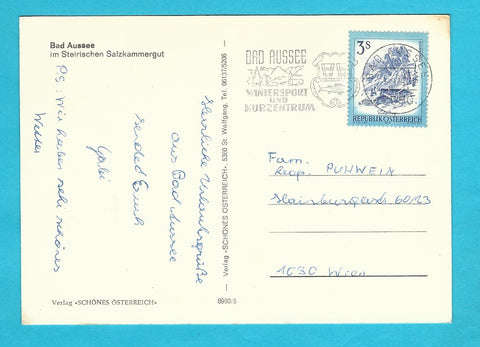 Bad Aussee
im Steirischen Salzkammergut
Herzliche Urlaubsgrüße
aus Bad Aussee
sendet Euch
Gabi
PS: Wir haben sehr schönes
Wetter
Verlag »SCHÖNES ÖSTERREICH«
8990/5
Verlag »SCHÖNES ÖSTERREICH«, 5360 St. Wolfgang, Tel. 06137/5206
BAD AUSSEE
WINTERSPORT
UND
KURZENTRUM
3S
REPUBLIK ÖSTERREICH
Fam.
PUHWEIN
60/23
1030 Wien